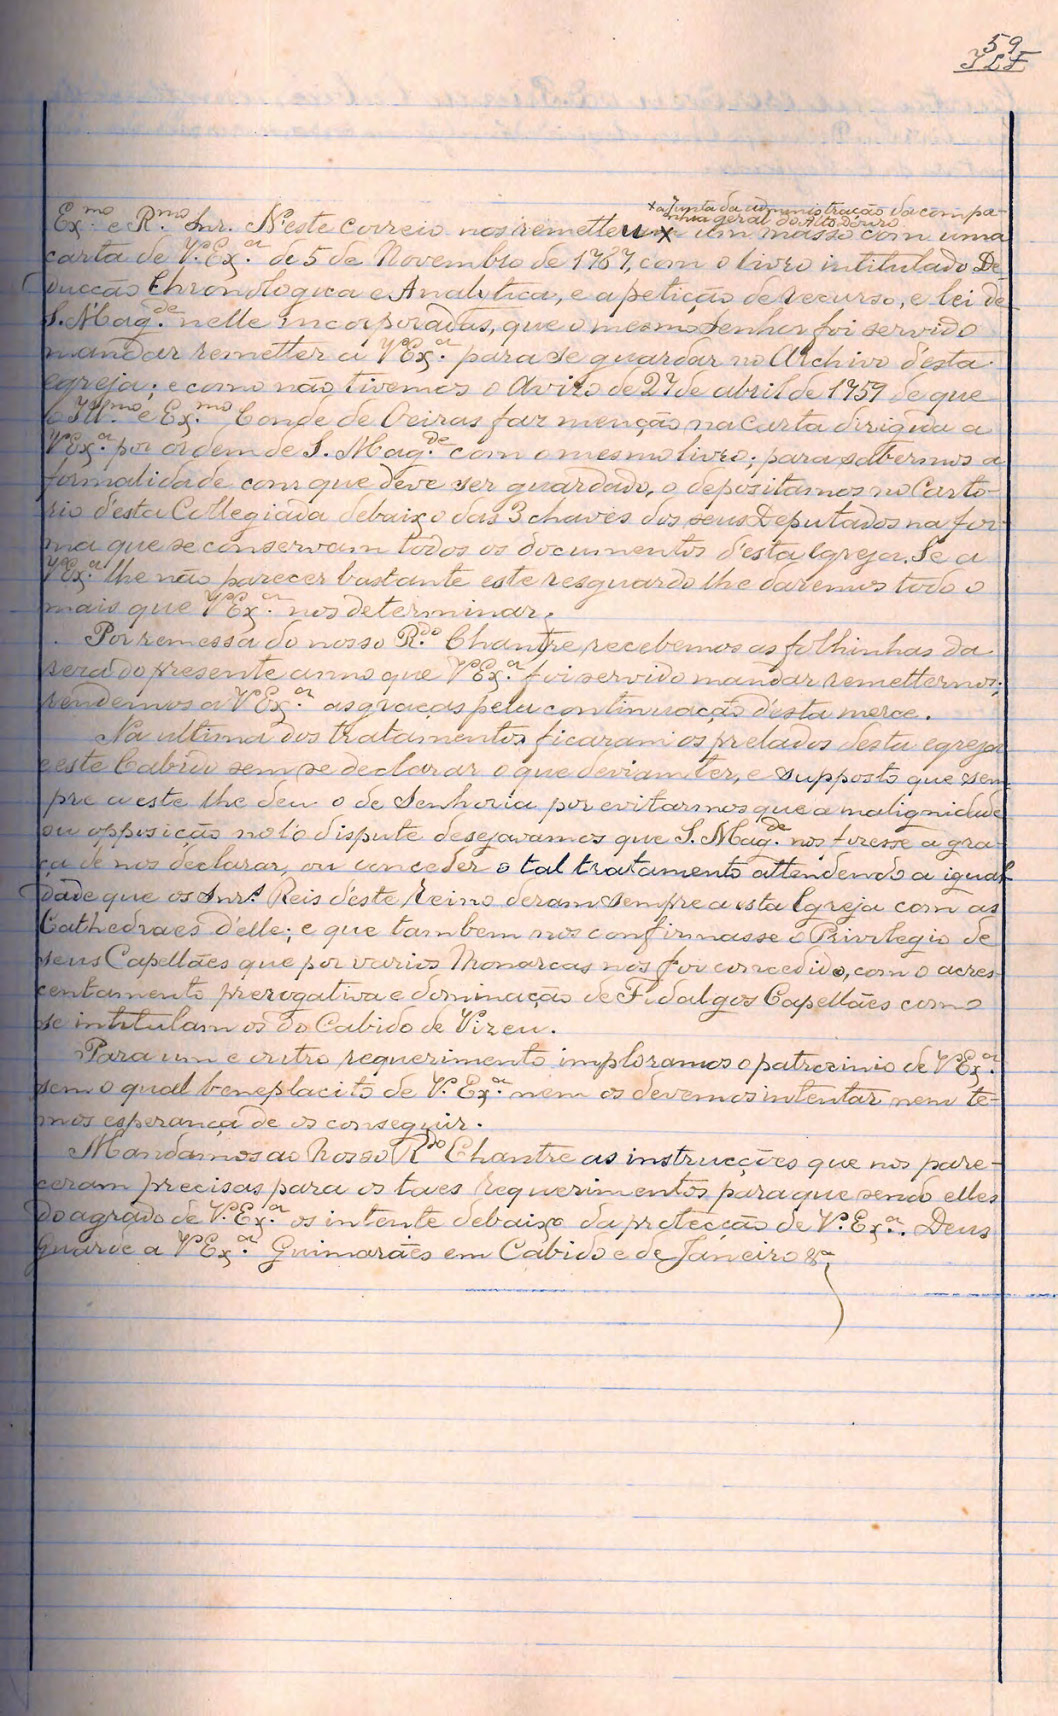 59
Ex.mo e R.mo Snr. N'este Correio nos remetteu x um masso com uma
x a Junta da administração da compa-
nhia geral do Alto Douro
carta de V.Ex.ª de 5 de Novembro de 1767, com o livro intitulado De
ducção Chronologica e Analytica, e a petição de recurso, e lei de
S. Mag.de nelle incorporadas, que o mesmo Senhor foi servido
mandar remetter a V Ex.ª para se guardar no Archivo d'esta
egreja; e como não tivemos o Aviso de 27 de abril de 1759 de que
o Ill.mo e Ex.mo Conde de Oeiras faz menção na Carta dirigida a
V Ex.ª por ordem de S. Mag.de com o mesmo livro; para sabermos a
formalidade com que deve ser guardado, o depositamos no Carto-
rio d'esta Collegiada debaixo das 3 chaves dos seus Deputados na for
ma que se conservam todos os documentos d'esta Igreja. Se a
V Ex.ª lhe não parecer bastante este resguardo lhe daremos todo o
mais que V Ex.ª nos determinar.
Por remessa do nosso R.do Chantre recebemos as folhinhas da
reza do presente anno que V Ex.ª foi servido mandar remetternos;
rendemos a V Ex.ª as graças pela continuação d'esta merce.
Na ultima dos tratamentos ficaram os prelados desta egreja
e este Cabido sem se declarar o que deviam ter, e supposto que sem
pre a este lhe deu o de Senhoria por evitarmos que a malignidade
ou opposição nol'o dispute desejavamos que S. Mag.de nos fizesse a gra-
ça de nos declarar, ou conceder o tal tratamento attendendo a igual
dade que os Snrs Reis d'este Reino deram sempre a esta Igreja com as
Cathedraes d'elle; e que tambem nos confirmasse o Privilegio de
seus Capellães que por varios Monarcas nos foi concedido, com o acres
centamento prerogativa e dominação de Fidalgos Capellães como
se intitulam os do Cabido de Vizeu.
Para um e outro requerimento imploramos o patrocinio de V Ex.ª
sem o qual beneplacito de V. Ex.ª nem os devemos intentar nem te-
mos esperança de os conseguir.
Mandamos ao Nosso R.do Chantre as instrucções que nos pare-
ceram precisas para os taes requerimentos para que sendo elles
do agrado de V. Ex.ª os intente debaixo da protecção de V. Ex.ª. Deus
guarde a V Ex.ª Guimarães em Cabido e de Janeiro &ª